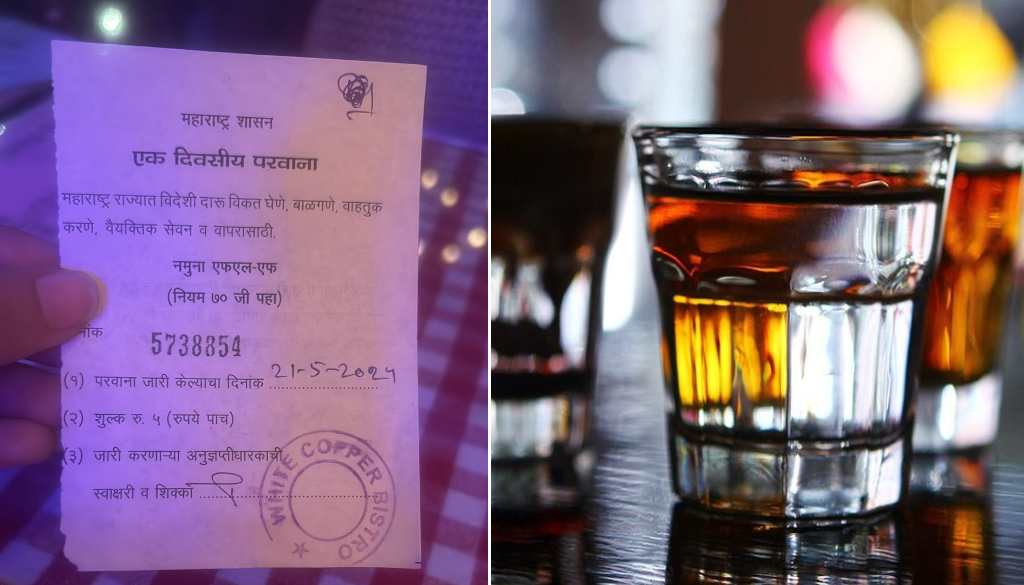 महाराष्ट्र शासन
एक दिवसीय परवाना
महाराष्ट्र राज्यात विदेशी दारू विकत घेणे, बाळगणे, वाहतुक
करणे, वैयक्तिक सेवन व वापरासाठी.
नमुना एफएल-एफ
(नियम ७० जी पहा)
5738854
(१) परवाना जारी केल्याचा दिनांक 21-5-2024
(२) शुल्क रु. ५ (रुपये पाच)
(३) जारी करणाऱ्या अनुज्ञप्तीधारकाची
स्वाक्षरी व शिक्का
WHITE COPPER BISTRO